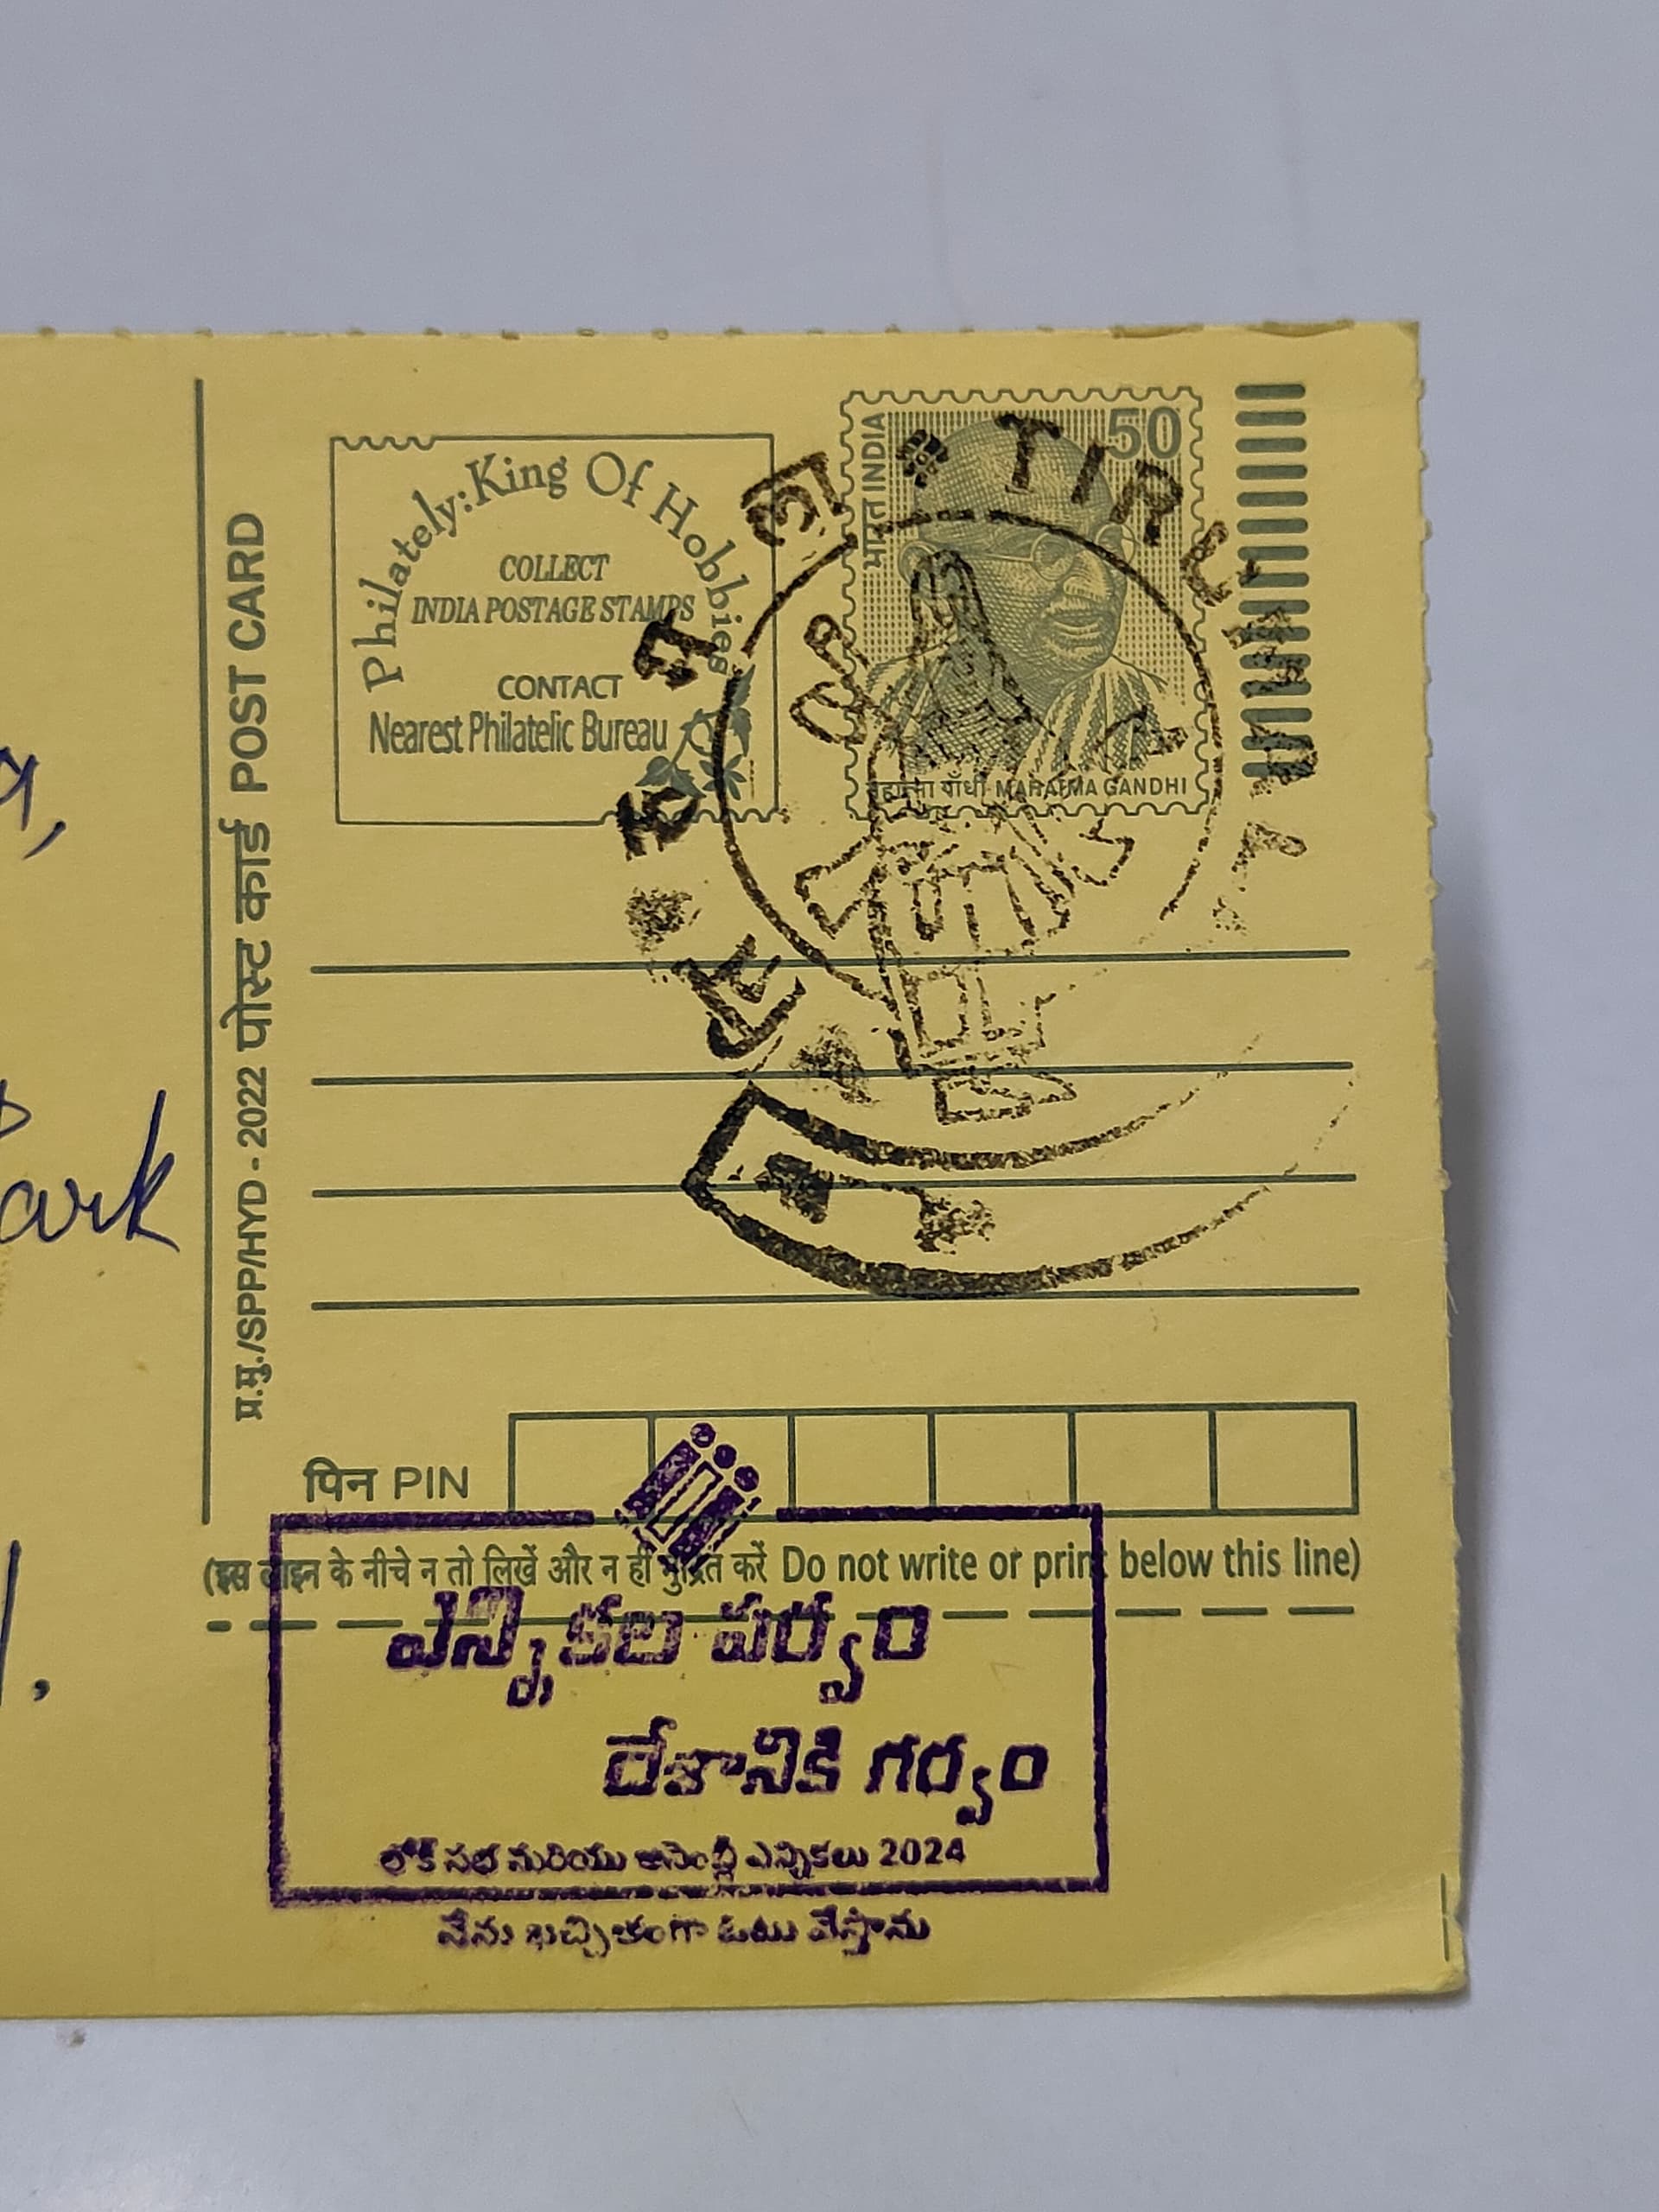 प्र.मु./SPP/HYD - 2022 पोस्ट कार्ड POST CARD
Philately: King Of Hobbies
COLLECT
INDIA POSTAGE STAMPS
CONTACT
Nearest Philatelic Bureau
भारत INDIA
50
महात्मा गाँधी MAHATMA GANDHI
ark
पिन PIN
(इस लाइन के नीचे न तो लिखें और न ही मुद्रित करें Do not write or print below this line)
ఎన్నికల పర్వం
దేశానికి గర్వం
లోక్ సభ మరియు అసెంబ్లీ ఎన్నికలు 2024
నేను ఖచ్చితంగా ఓటు వేస్తాను